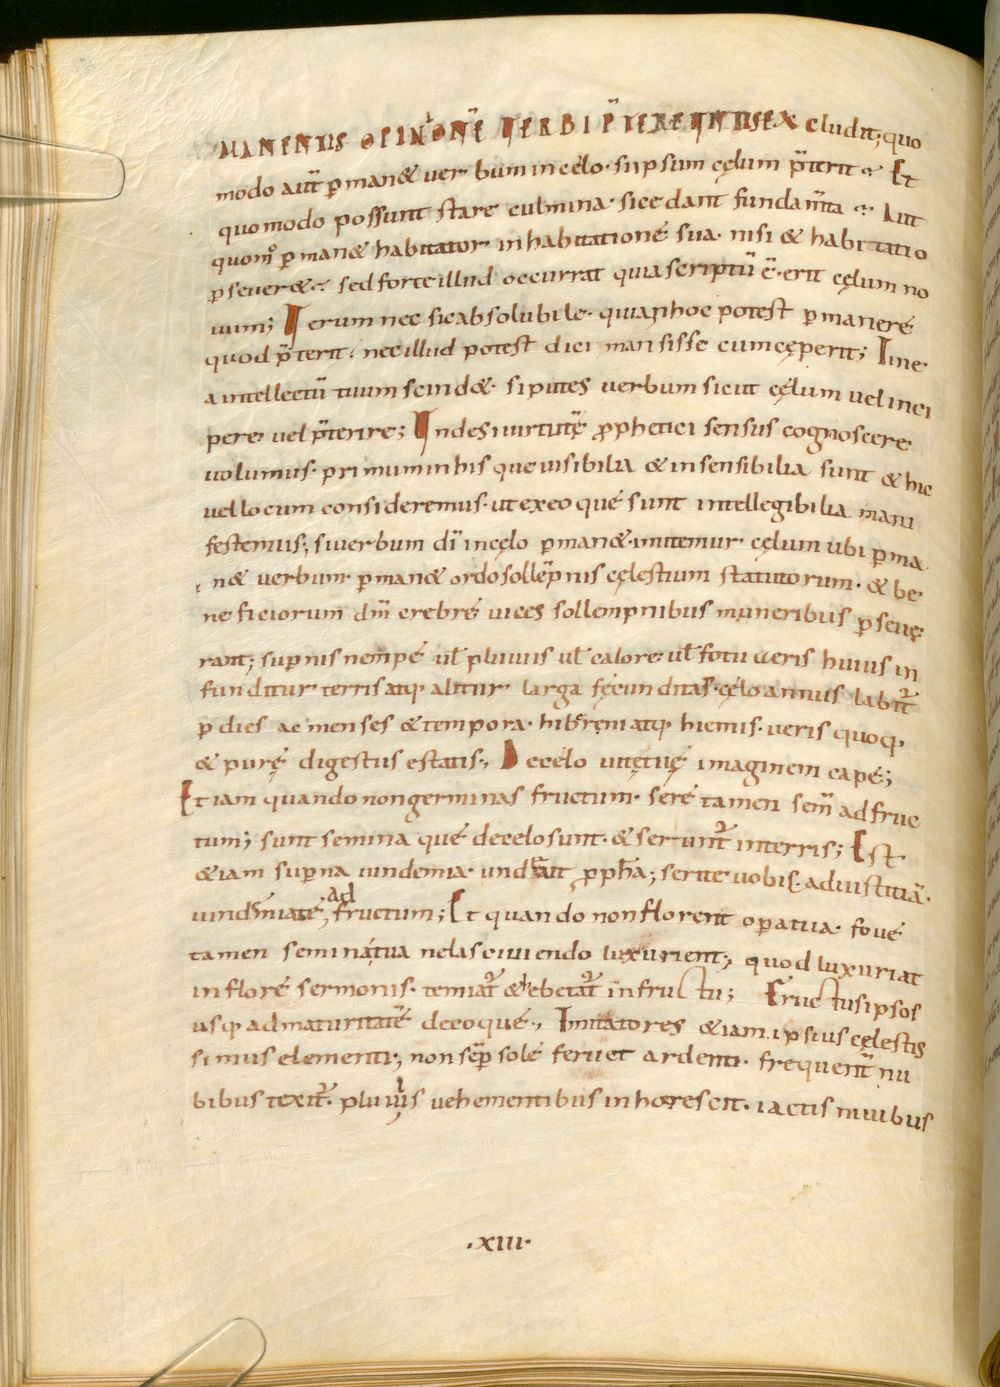 MANENTIS OPINIONĒ VERBI P̄TEREUNTIS EX cludit; quo
modo aut̄ ꝑmanet uerbum in celo· si ipsum cęlum p̄terit ? Et
quomodo possunt stare culmina· si cedant fundam̄ta ? Aut
quom̊ ꝑmanet habitator in habitationé sua· nisi & habitatio
ꝑseueret ? sed forte illud occurrat quia scriptū ē· erit cęlum no
uum; Verum nec sic absolubile· quia n̄ hoc potest ꝑmaneré
quod p̄terit· nec illud potest dici mansisse cum cęperit; Tine·
a intellectū tuum scindet· si putes uerbum sicut cęlum uel inci
pere· uel p̄terire; Unde si uirtutē ꝓphetici sensus cognoscere
uolumus· primum in his que uisibilia & insensibilia sunt & hic
uel locum consideremus· ut ex eo qué sunt intellegibilia mani
festemus; si uerbum dī in cęlo ꝑmanet· imitemur cęlum ubi ꝑma
net uerbum· ꝑmanet ordo sollēpnis cęlestium statutorum· & be
neficiorum dn̄i crebré uices sollempnibus muneribus ꝑseuę
rant; supernis nempé ul̄ pluuiis ul̄ calore· ul̄ fotu aeris huius in
funditur terris atq; alitur larga fęcunditas· cęlo annus labit̄
ꝑ dies ac menses & tempora· hib̄ręni atq; hiemis· ueris quoq;
& purę digestus estatis; De celo uitę tuę imaginem capé;
Etiam quando non germinas fructum· seré tamen sem̄ ad fruc
tum; sunt semina qué de celo sunt· & serunt̄ in terris; Est
etiam superna uindemia· und̄ ait ꝓph̄a; serite uobis· ad iustitiā·
uind̄miaté ad fructum; Et quando non florent opera tua· foué
tamen semina tua ne lasciuiendo luxurient; quod luxuriat
in floré sermonis· teniat̄ & hebetat̄ in fructu; Fructus ipsos
usq; ad maturitatē decoqué; Imitatores etiam ipsius cęlestis
simus elementi; non sēp solé feruet ardenti· frequent̄ nu
bibus texit̄· pluuiis uehementibus inhorescit· iactis niuibus
·XIII·